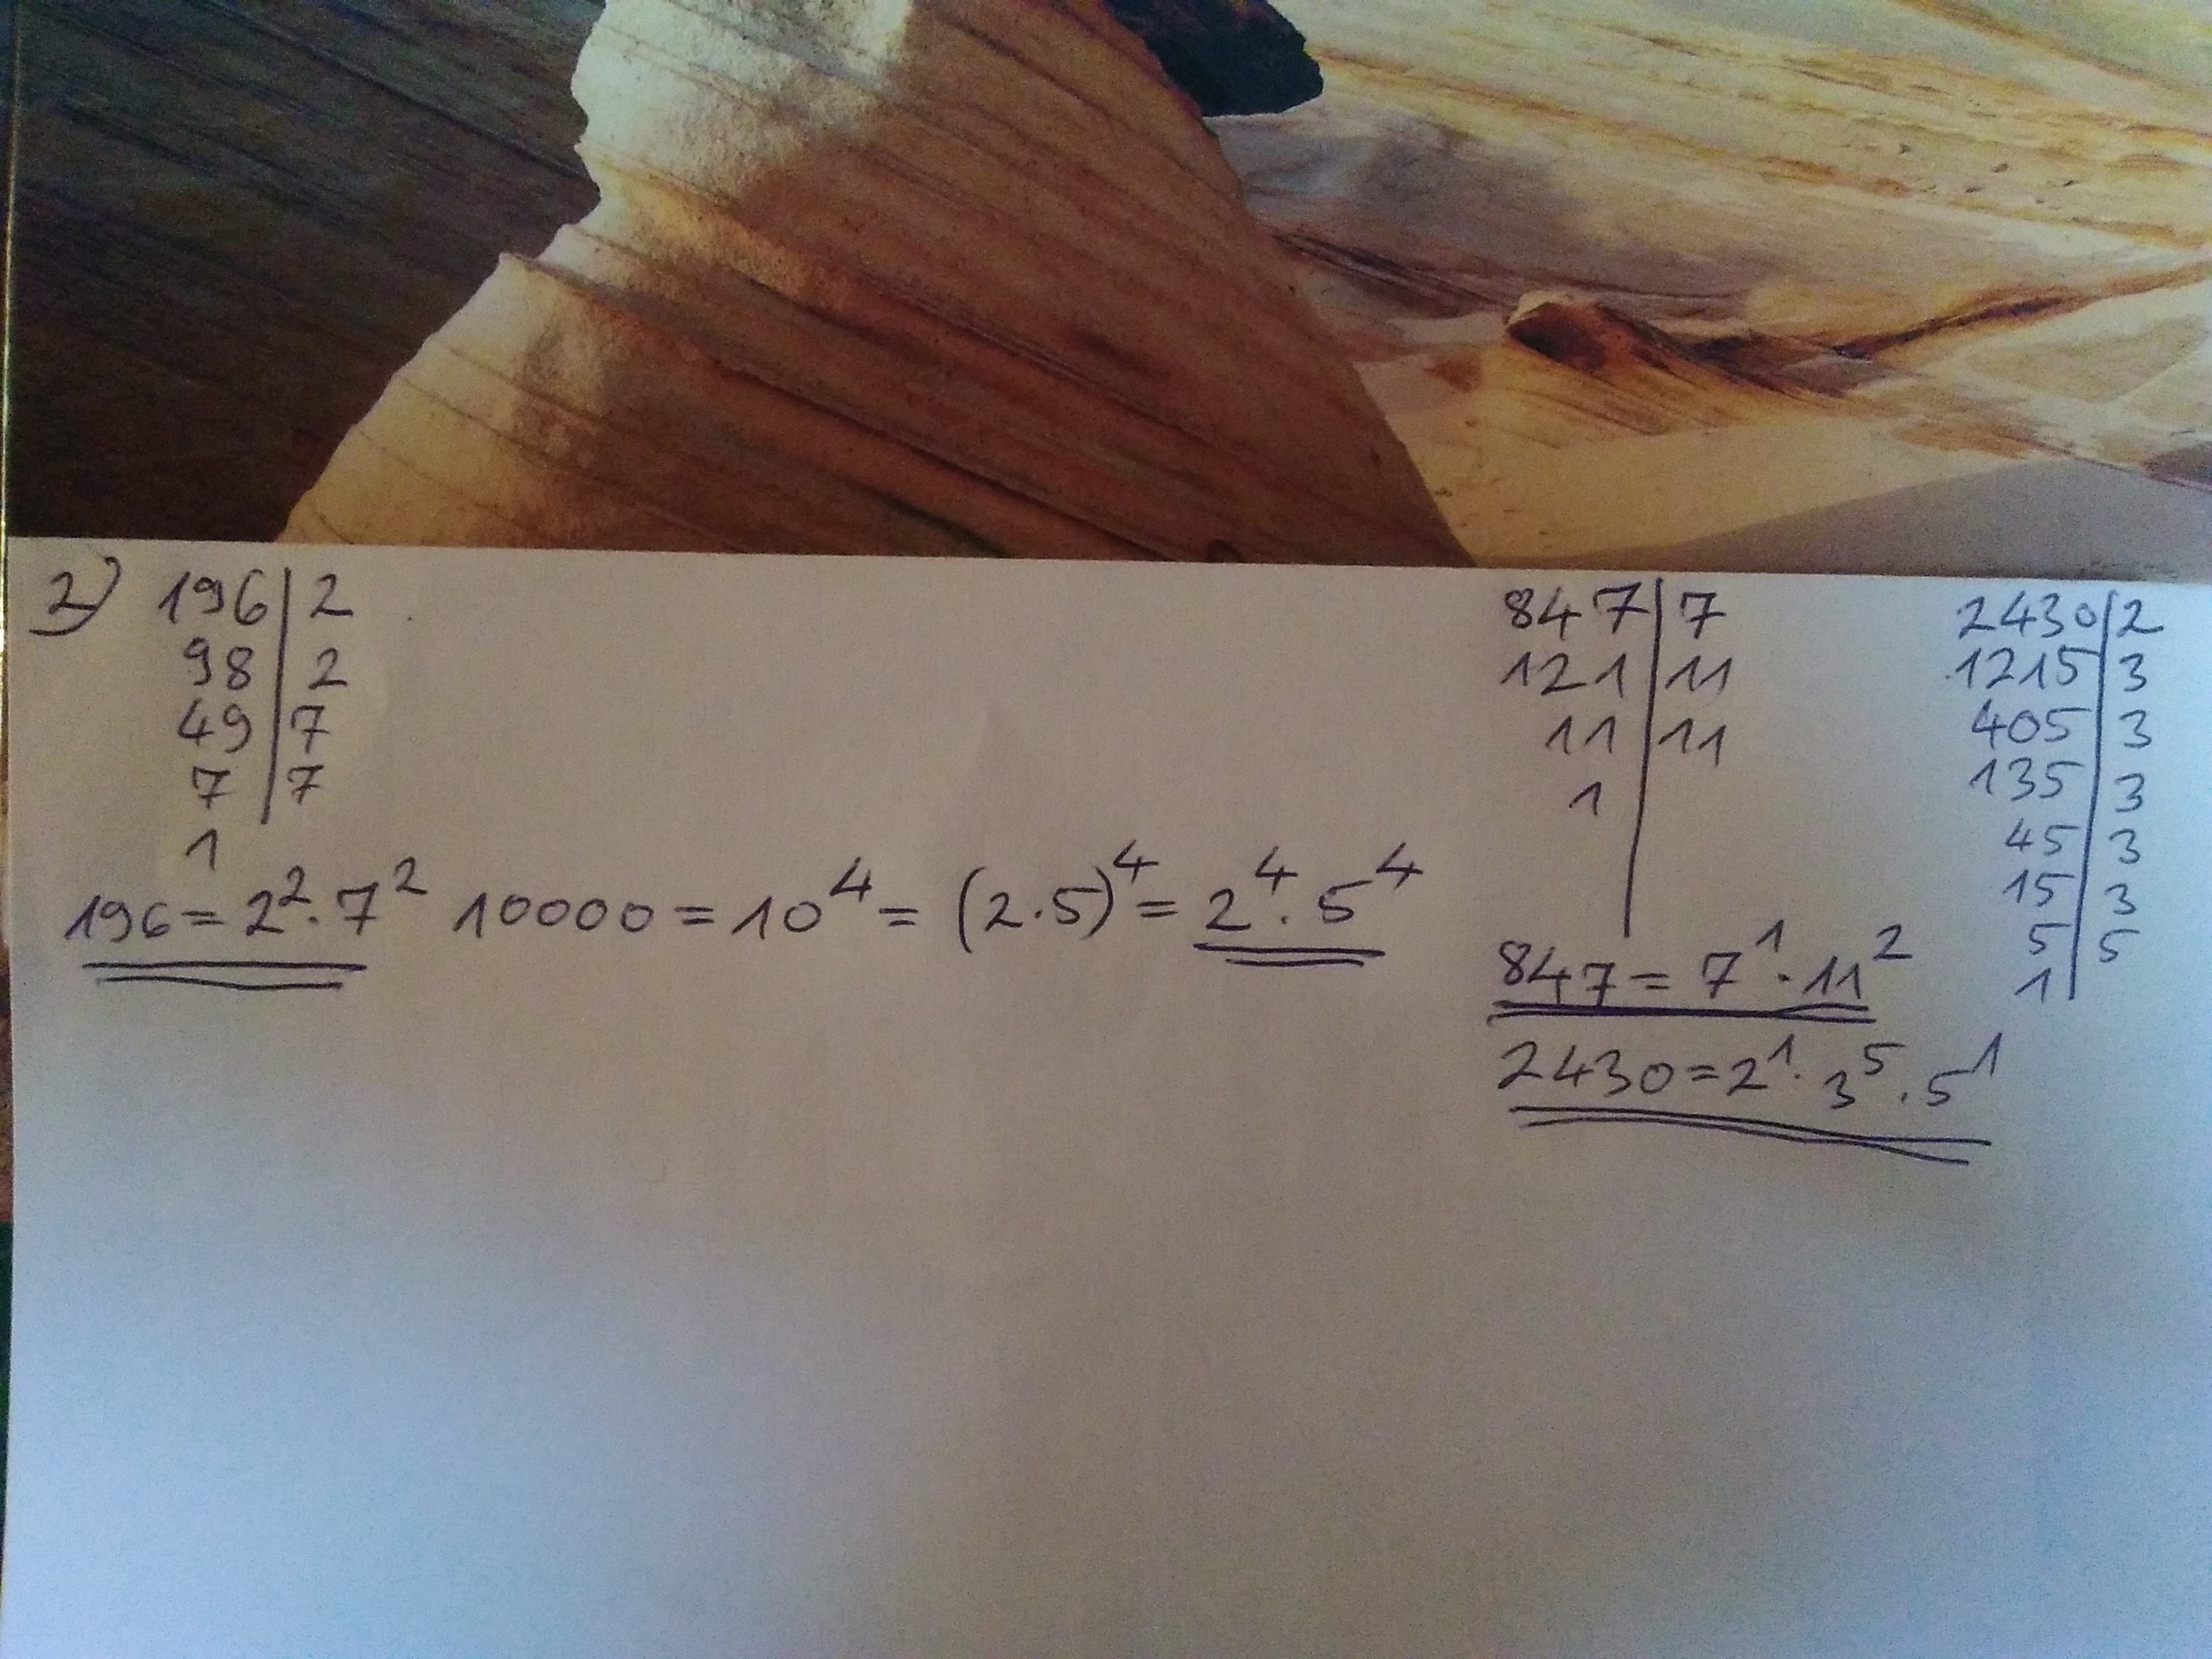 2) 196 | 2
98 | 2
49 | 7
7 | 7
1
196 = 2² · 7²
10000 = 10⁴ = (2·5)⁴ = 2⁴ · 5⁴
847 | 7
121 | 11
11 | 11
1
847 = 7¹ · 11²
2430 | 2
1215 | 3
405 | 3
135 | 3
45 | 3
15 | 3
5 | 5
1
2430 = 2¹ · 3⁵ · 5¹